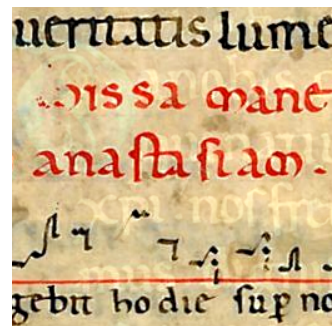 ueritatis lume
missa mane
anastasiam.
gebit hodie sup no